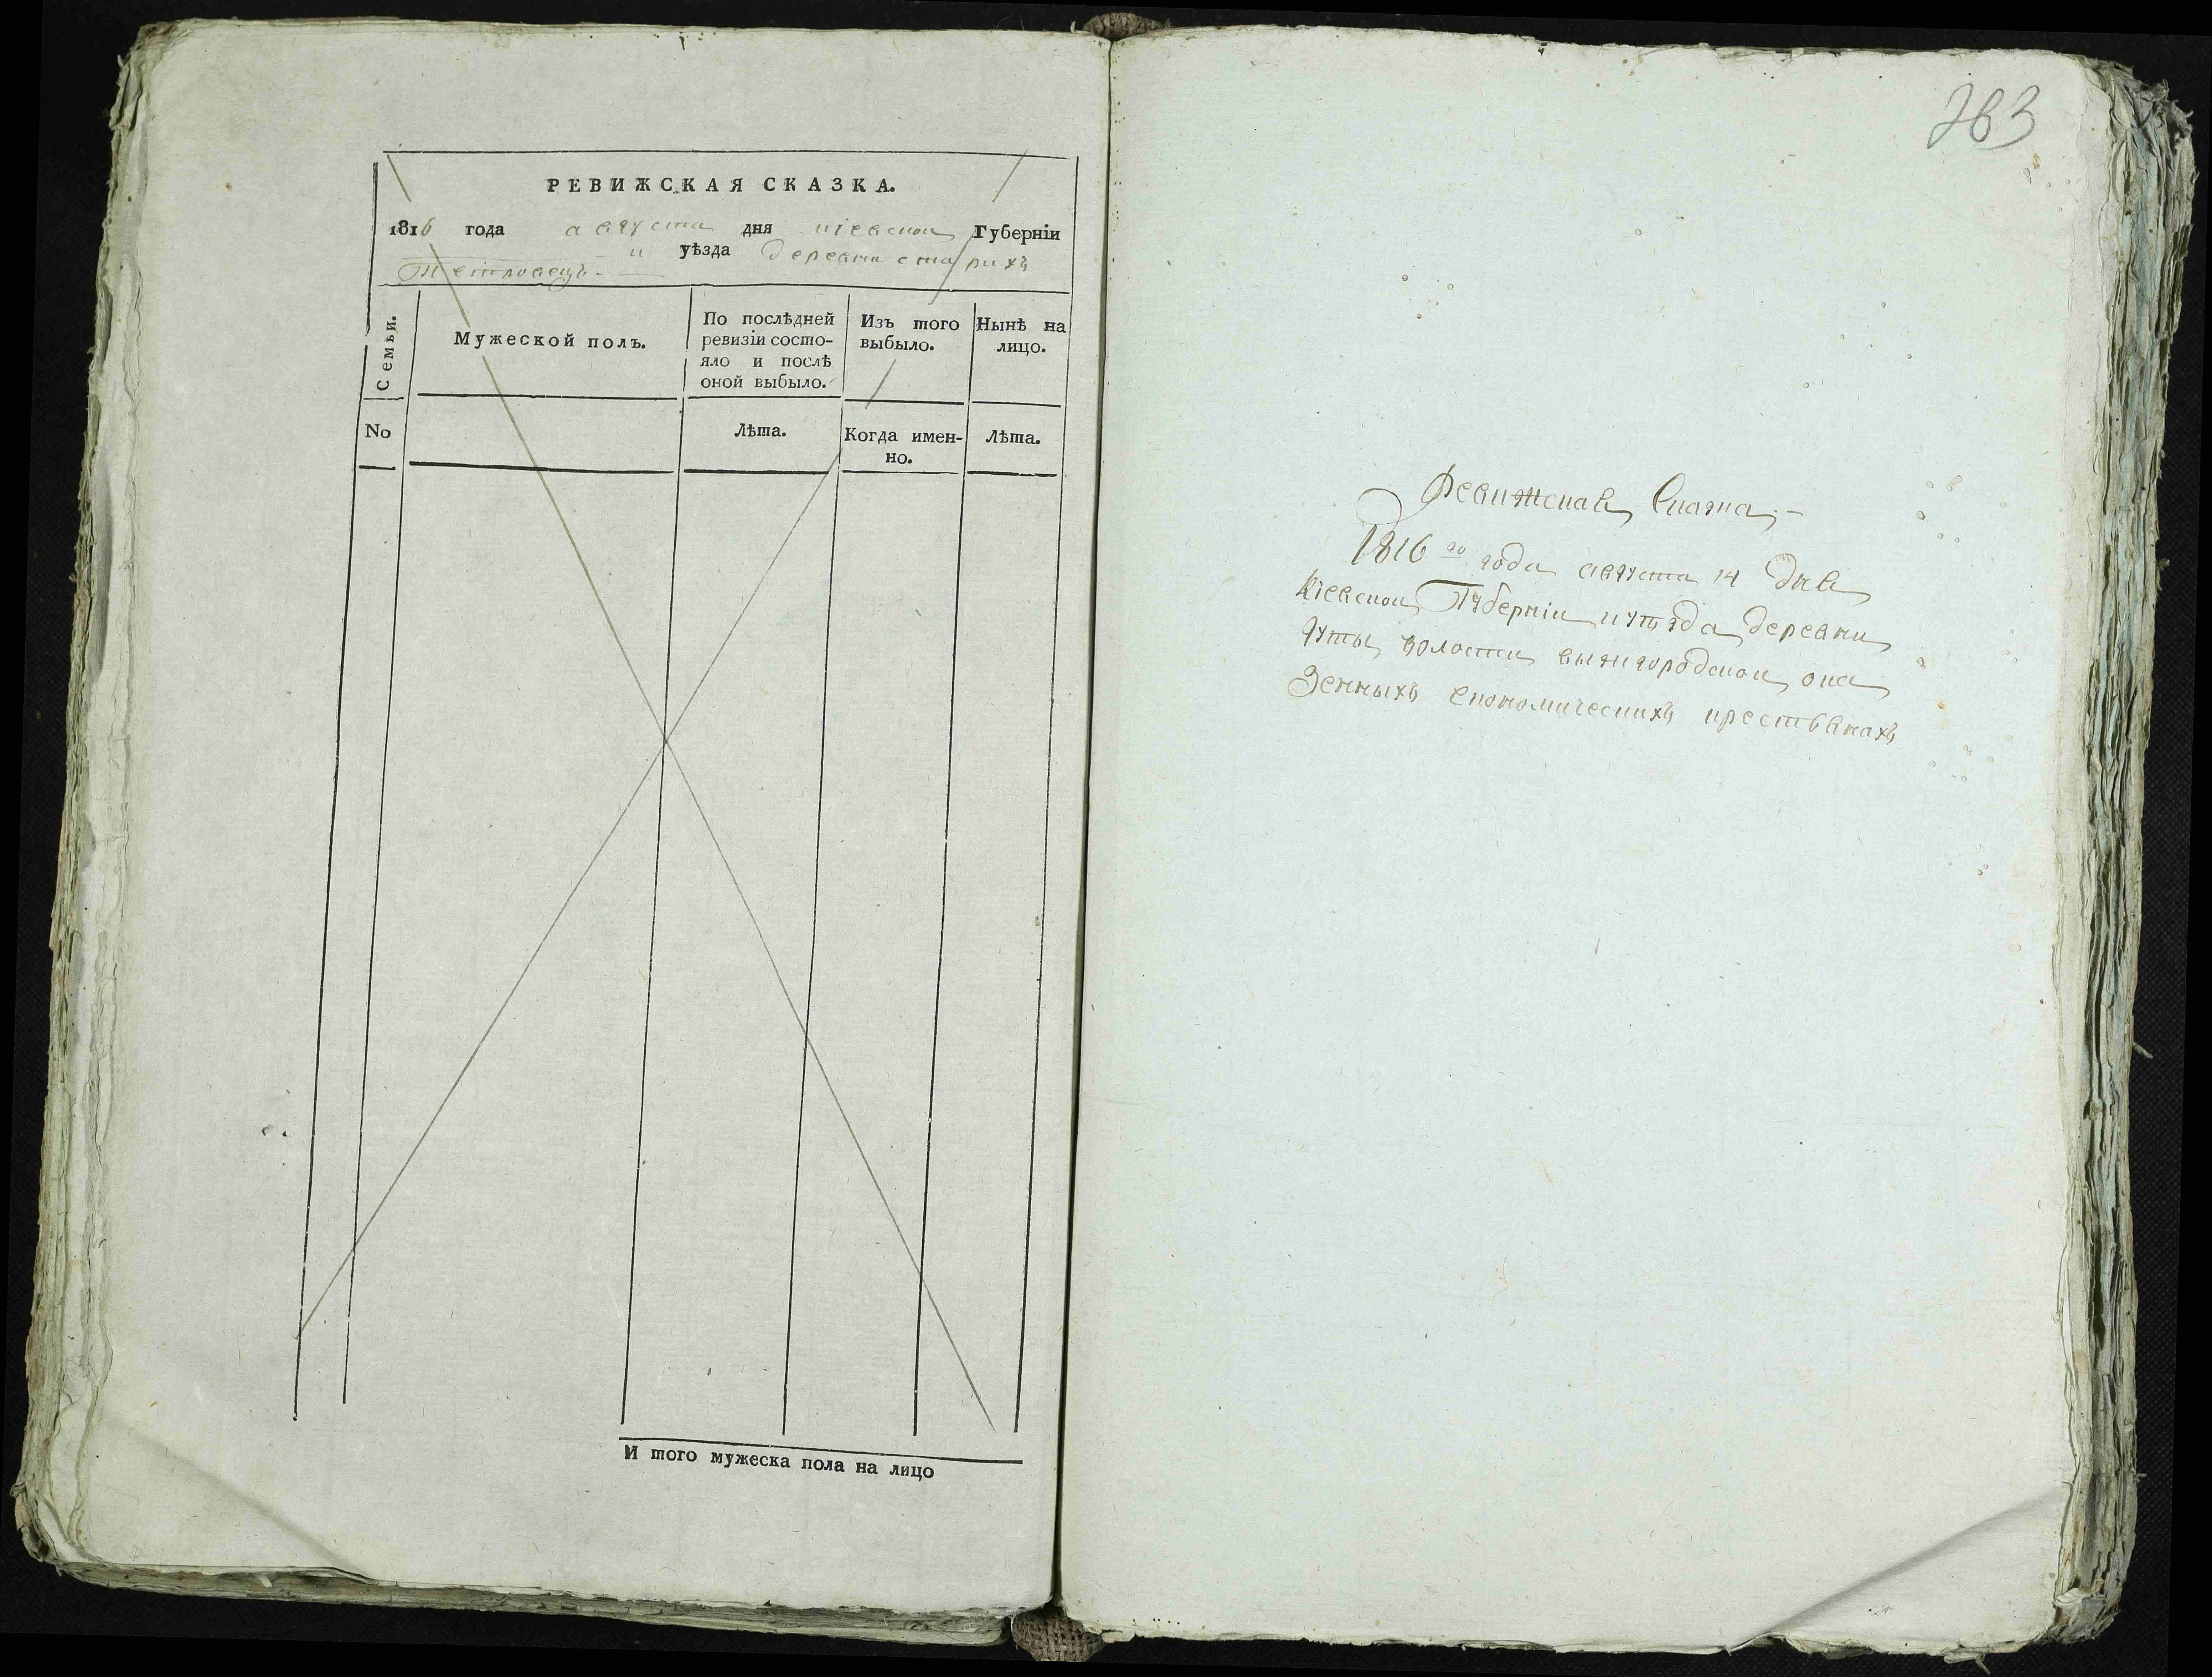 РЕВИЖСКАЯ СКАЗКА.
1816 года августа дня кіевской Губерніи
и уѣзда деревни старихъ
Петровецъ
Семьи.
Мужеской полъ.
По послѣдней
ревизіи состо-
яло и послѣ
оной выбыло.
Изъ того
выбыло.
Нынѣ на
лицо.
No
Лѣта.
Когда имен-
но.
Лѣта.
И того мужеска пола на лицо
263
Ревижская Сказка,-
1816го года августа 14 Дня
Кіевской Губерніи и уѣзда деревни
волости вышгородской, о ка
зенныхъ економическихъ крестьянахъ